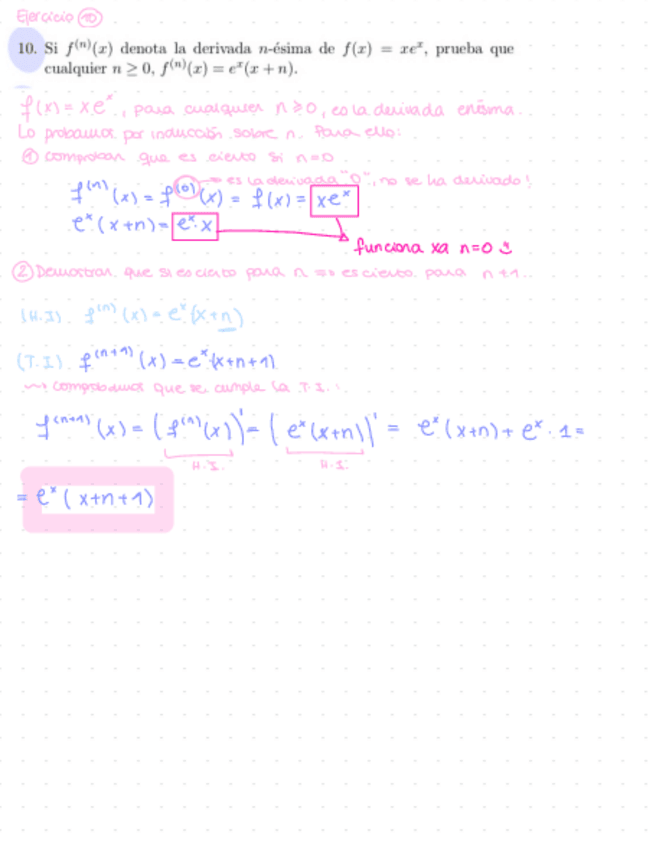 Ejercicio 10
10. Si f⁽ⁿ⁾(x) denota la derivada n-ésima de f(x) = xeˣ, prueba que
cualquier n ≥ 0, f⁽ⁿ⁾(x) = eˣ(x + n).
f(x) = xeˣ, para cualquier n ≥ 0, es la derivada enésima.
Lo probamos por inducción sobre n. Para ello:
① comprobar que es cierto si n=0
→ es la derivada "0", no se ha derivado!
f⁽ⁿ⁾(x) = f⁽⁰⁾(x) = f(x) = xeˣ
eˣ(x+n) = eˣ·x
funciona xa n=0 :)
② Demostrar que si es cierto para n => es cierto para n+1.
(H.I). f⁽ⁿ⁾(x) = eˣ(x+n)
(T.I). f⁽ⁿ⁺¹⁾(x) = eˣ(x+n+1)
~> comprobamos que se cumple la T.I.:
f⁽ⁿ⁺¹⁾(x) = (f⁽ⁿ⁾(x))' = (eˣ(x+n))' = eˣ(x+n) + eˣ·1 =
H.I. H.I.
= eˣ(x+n+1)